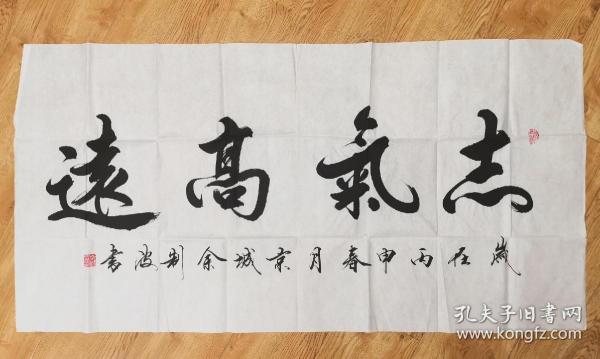 志氣高遠
歲在丙申春月京城余制波書
孔夫子旧书网
www.kongfz.com